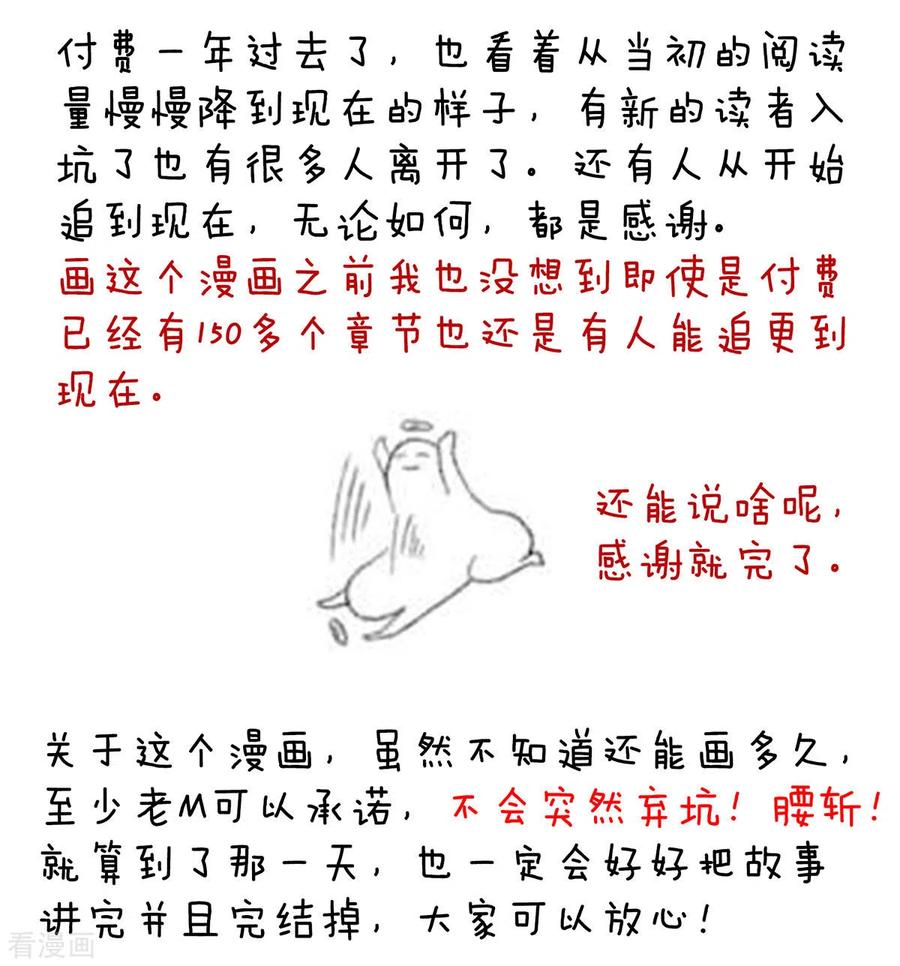 付费一年过去了，也看着从当初的阅读
量慢慢降到现在的样子，有新的读者入
坑了也有很多人离开了。还有人从开始
追到现在，无论如何，都是感谢。
画这个漫画之前我也没想到即使是付费
已经有150多个章节也还是有人能追更到
现在。
还能说啥呢，
感谢就完了。
关于这个漫画，虽然不知道还能画多久，
至少老M可以承诺，不会突然弃坑！腰斩！
就算到了那一天，也一定会好好把故事
讲完并且完结掉，大家可以放心！
看漫画